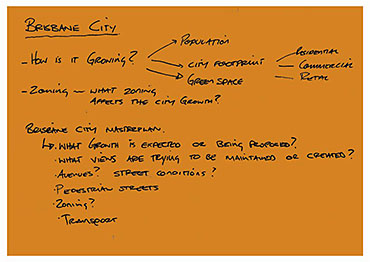 BRISBANE CITY
POPULATION
- HOW IS IT GROWING?
CITY FOOTPRINT
GREEN SPACE
RESIDENTIAL
COMMERCIAL
RETAIL
- ZONING - WHAT ZONING
AFFECTS THE CITY GROWTH?
BRISBANE CITY MASTERPLAN.
WHAT GROWTH IS EXPECTED OR BEING PROPOSED?
· WHAT VIEWS ARE TRYING TO BE MAINTAINED OR CREATED?
· AVENUES? STREET CONDITIONS?
· PEDESTRIAN STREETS
· ZONING?
· TRANSPORT